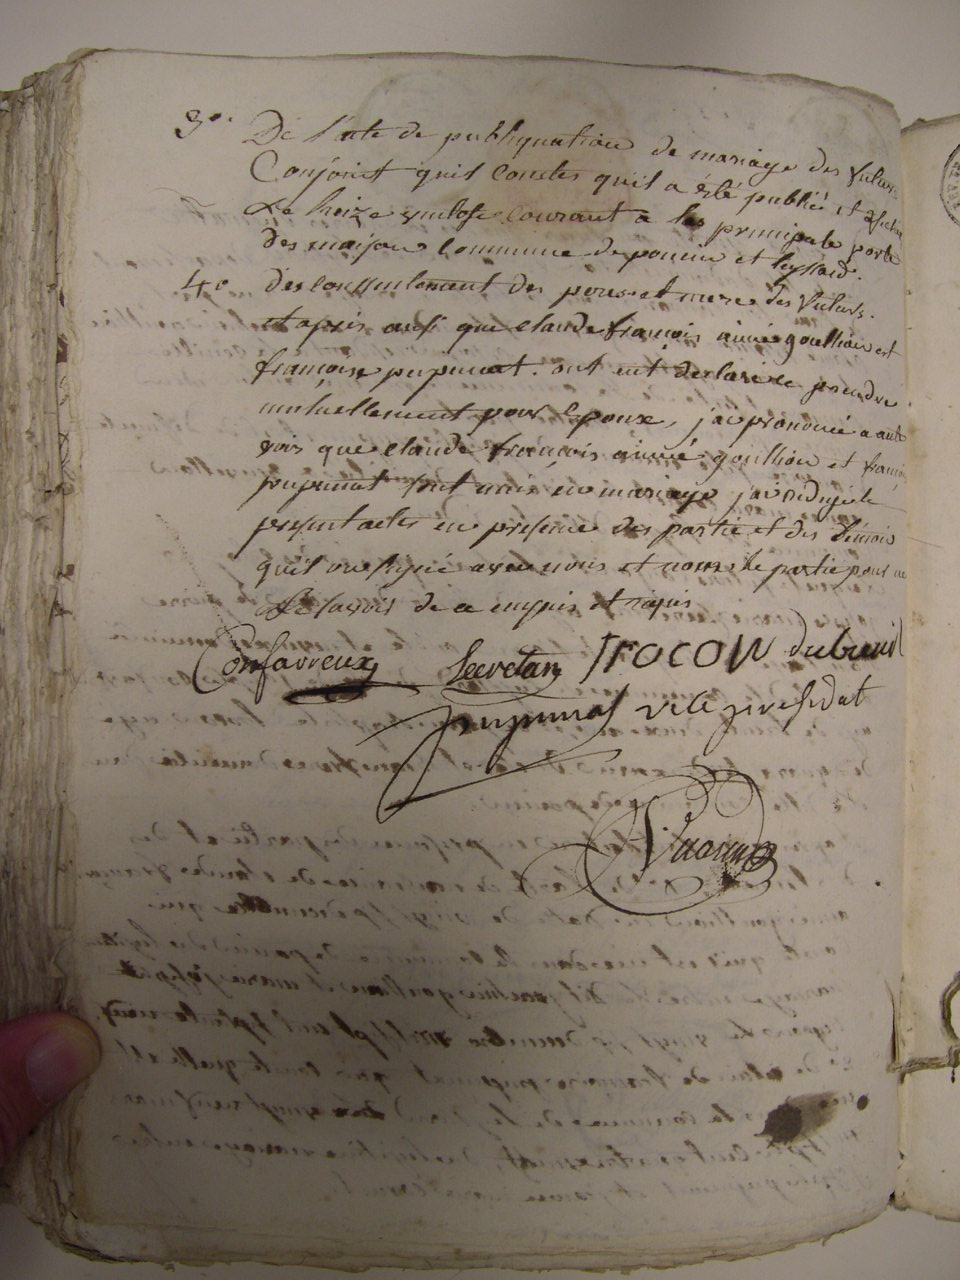 3o. De l'acte de publiquation de mariage des futurs
Conjoint quil conctes quil a été publié et afiché
Le treize ventose courant a les principale porte
des maison commune de poncin et leyssard.
4o des conssentement des peres et mere des futurs.
et apris ausi que claude françois aimé goullion et
françoise pupunat. ont eut déclaré se prendre
mutuellement pour Epoux, j'ai prononcé a aute
vois que claude françois aimé goullion et françoise
pupunat sont unis en mariage j'ai redujé le
present actes en presence des partie et des témois
quil on signé avec nous et nom le partie pour ne
Le savois de ce enquis et
Confavreux Secretair Trocon dubreuil
pupunat vice president